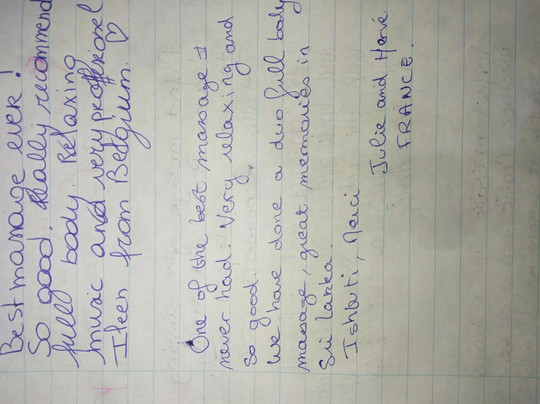 Best massage ever!
So good. Really recommend
full body. Relaxing
music and very professional
Ileen from Belgium. ♡
One of the best massage I
never had. Very relaxing and
so good.
We have done a duo full body
massage, great memories in
Sri Lanka.
Ishtuti, Merci
Julie and Hervé
FRANCE.